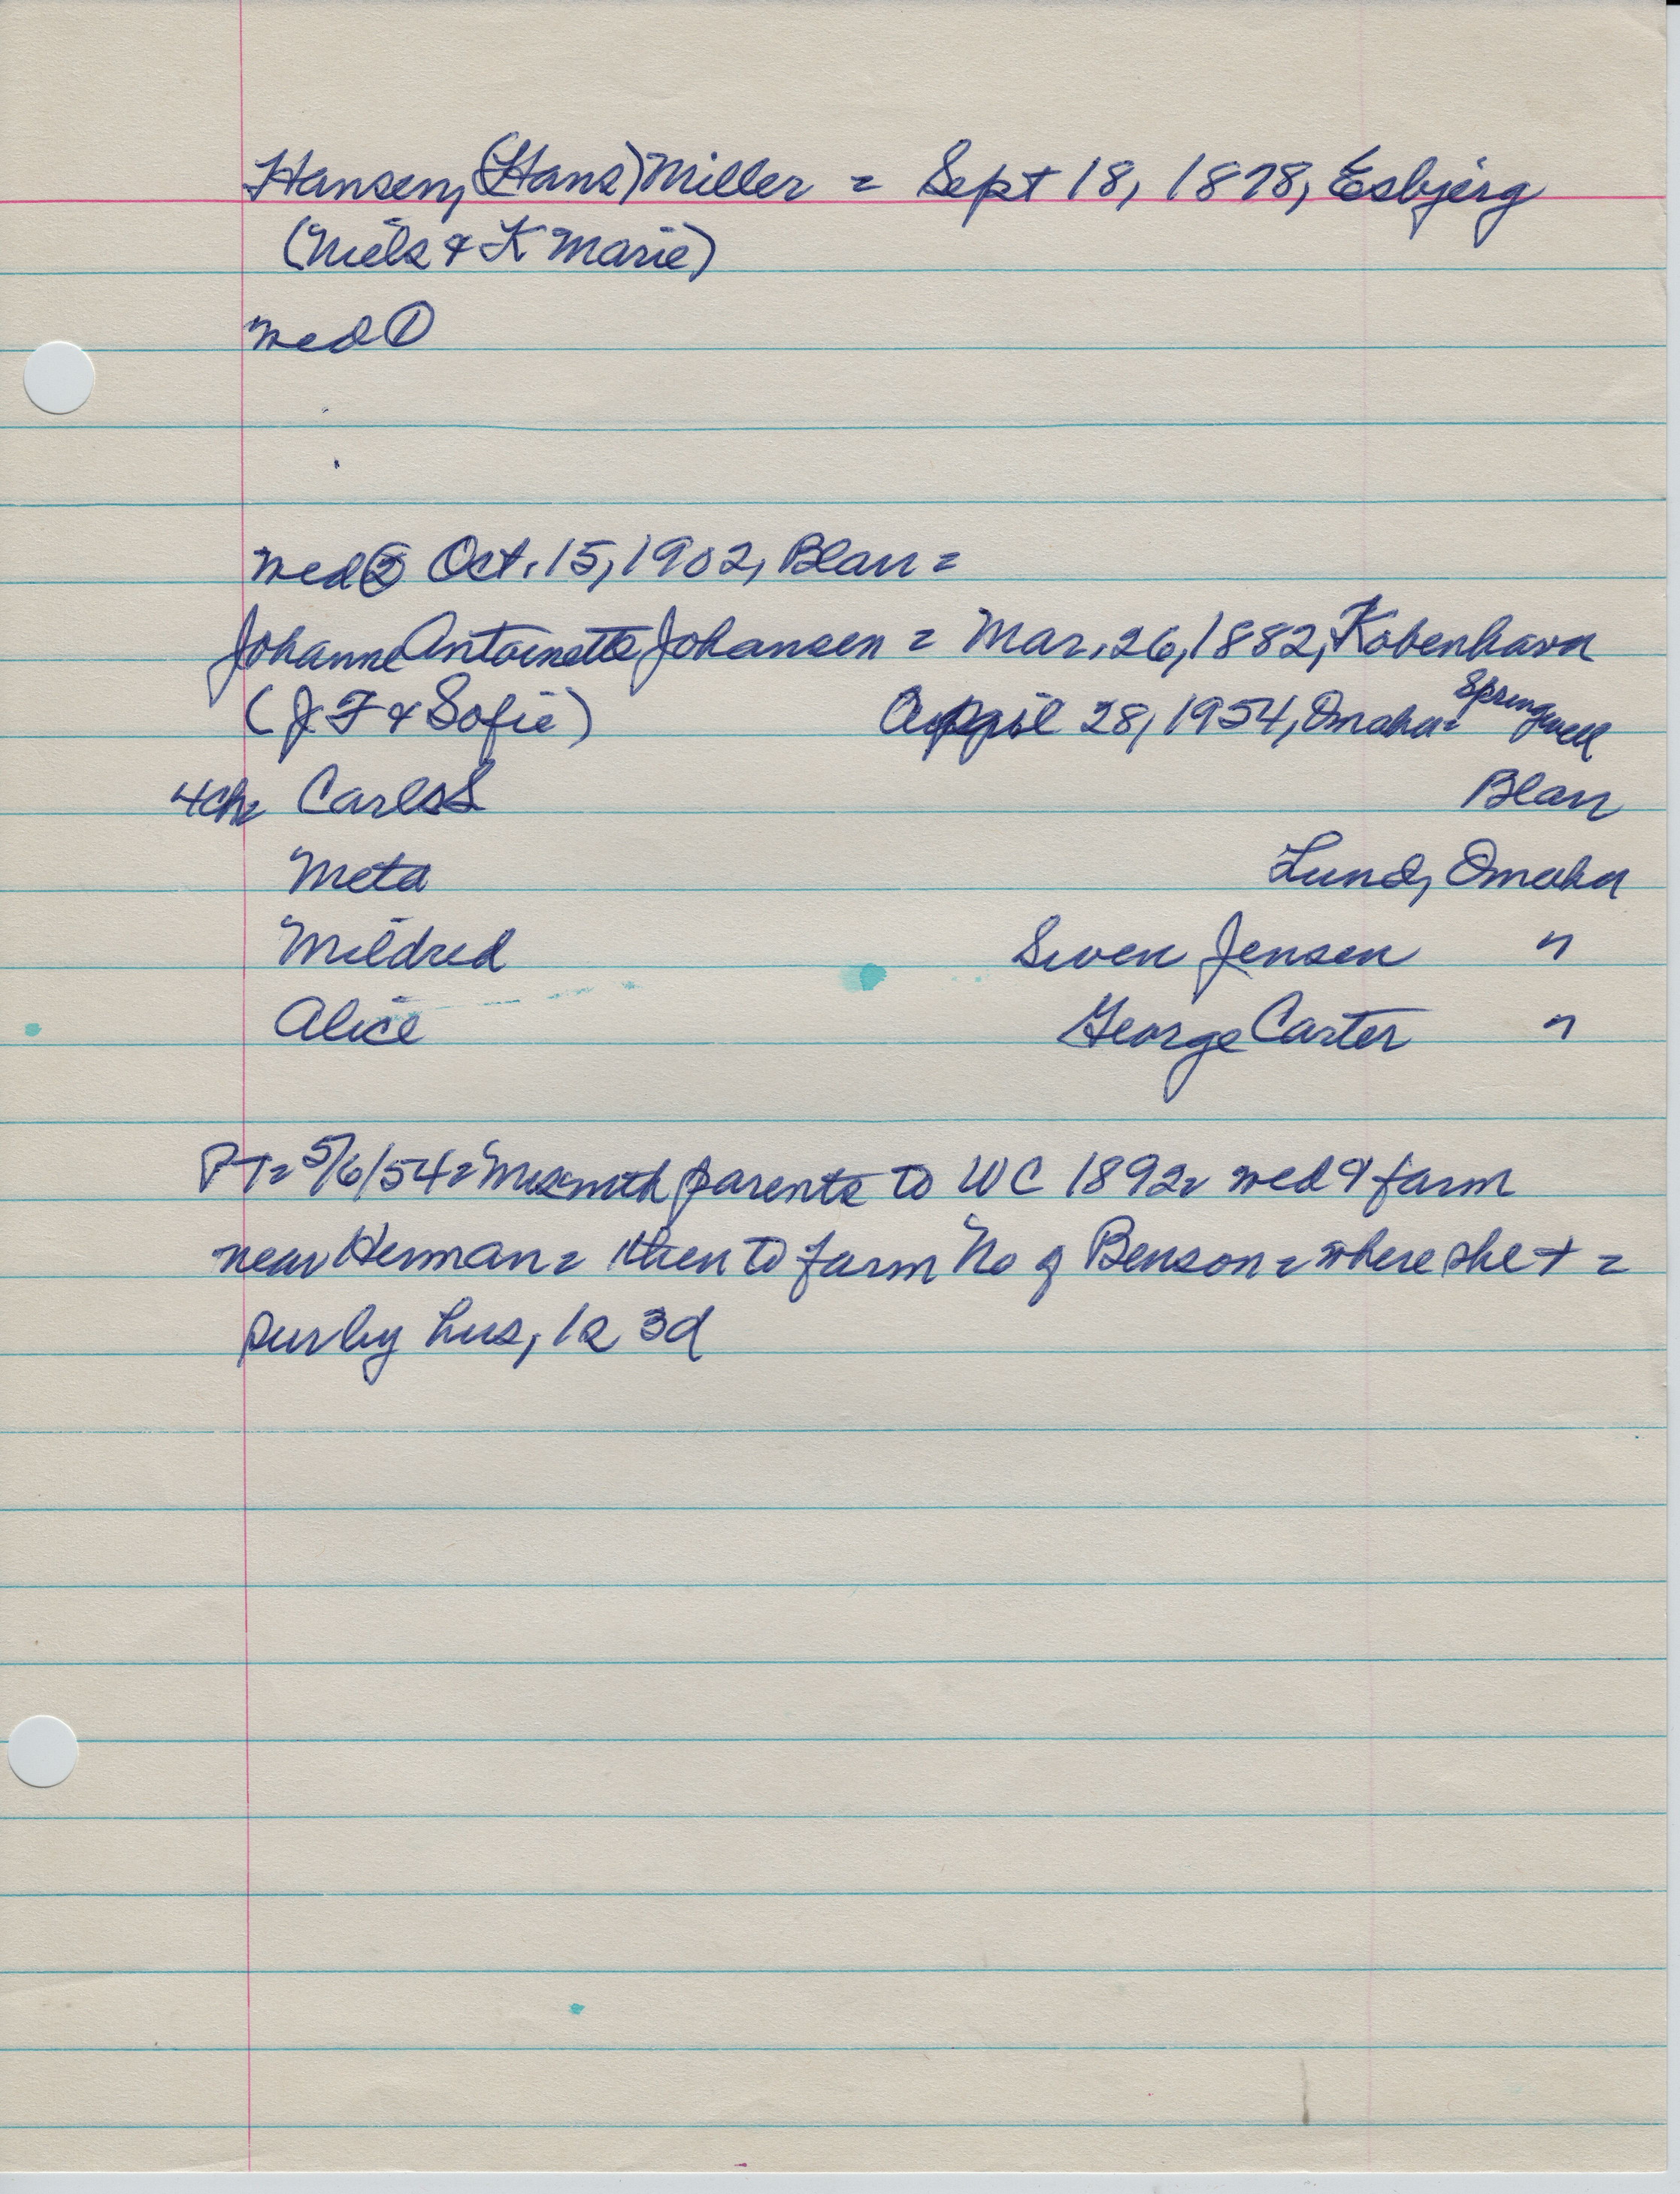 Hansen, (Hans) Miller = Sept 18, 1878, Esbjerg
(Niels & K Marie)
wed ①
wed ② Oct. 15, 1902, Blair =
Johanne Antoinette Johansen = Mar. 26, 1882, Kobenhavn
(J F & Sofie) April 28, 1954, Omaha = Springwell
4ch = Carl S Blair
Meta Lund, Omaha
Mildred Swen Jensen "
Alice George Carter "
PT = 5/6/54 = Mrs with parents to WC 1892 = wed & farm
near Herman = then to farm No of Benson = where she + =
sur by hus, 1s 3d